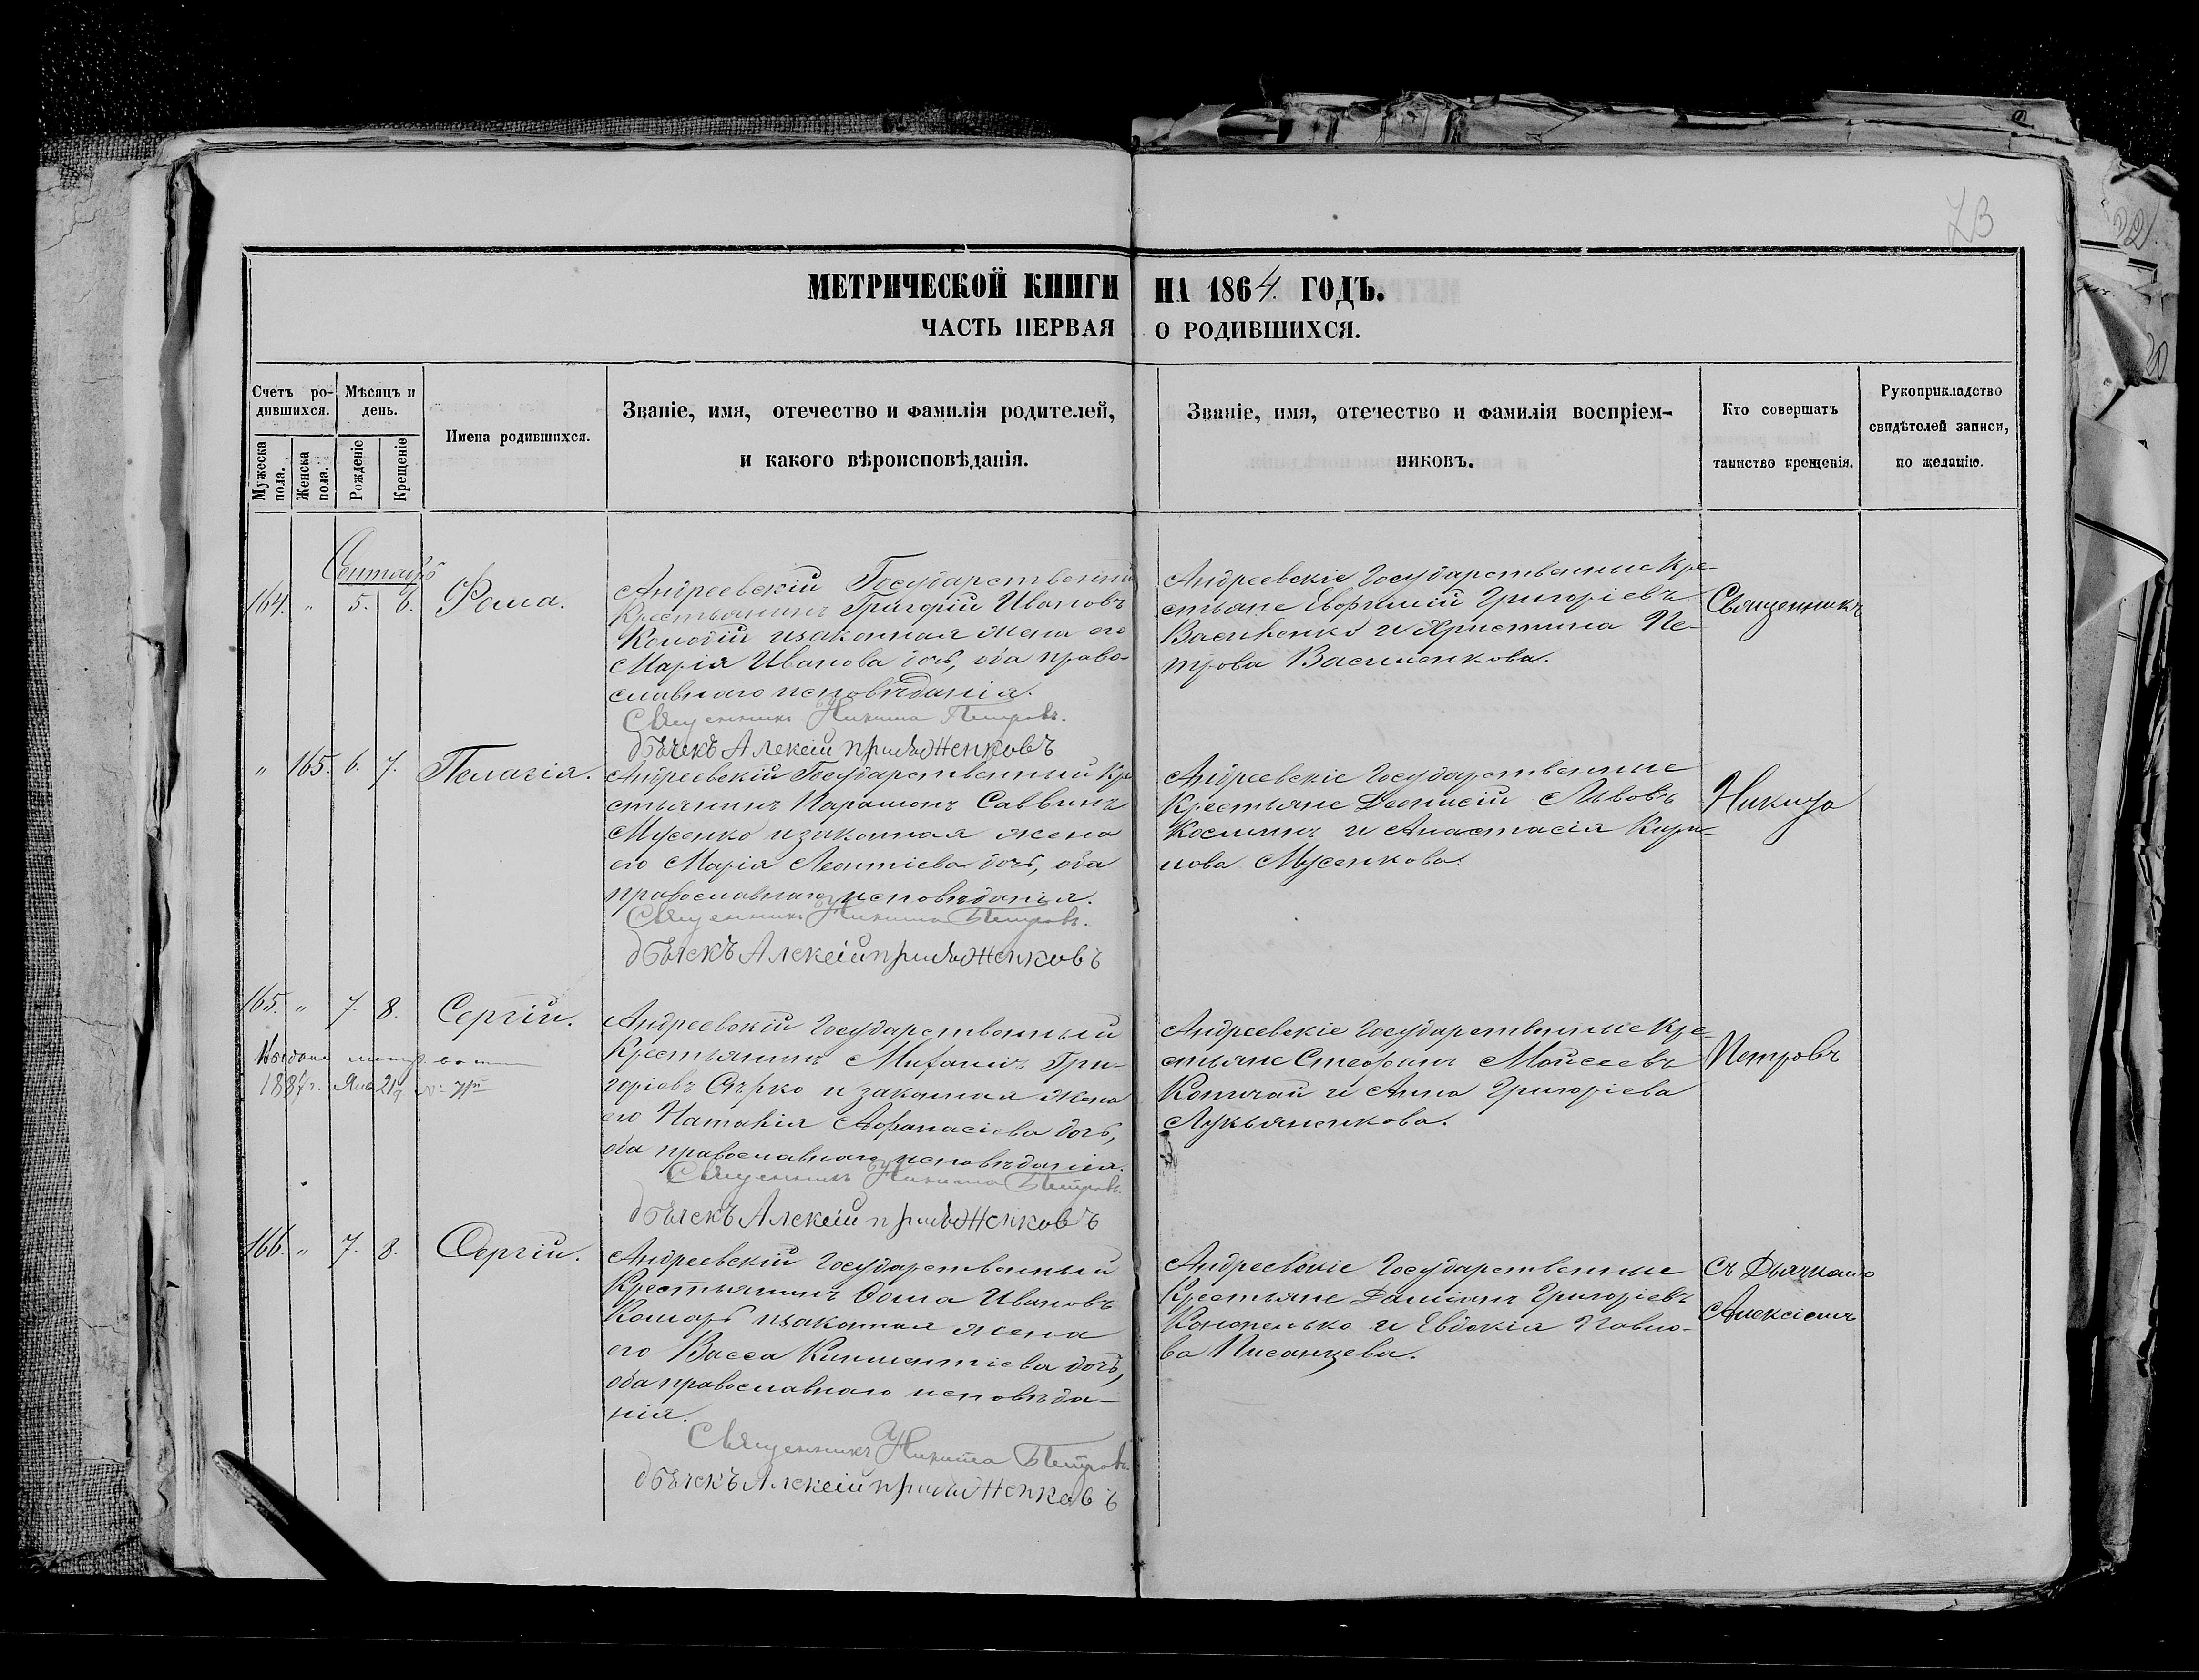 73
МЕТРИЧЕСКОЙ КНИГИ НА 1864 ГОДЪ.
ЧАСТЬ ПЕРВАЯ О РОДИВШИХСЯ.
Счетъ ро-
дившихся.
Мужеска пола.
Женска пола.
Мѣсяцъ и
день.
Рожденіе
Крещеніе
Имена родившихся.
Званіе, имя, отечество и фамилія родителей,
и какого вѣроисповѣданія.
Званіе, имя, отечество и фамилія воспріем-
никовъ.
Кто совершатъ
таинство крещенія.
Рукоприкладство
свидѣтелей записи,
по желанію.
Сентябрь
164. " 5. 6. Фома.
Андреевскій Государственный
Крестьянинъ Григорій Ивановъ
изаконная жена его
Марія Иванова дочь, оба право-
славнаго исповѣданія.
Священникъ Никита Петровъ.
дьячекъ Алексій
Андреевскіе Государственные Кре-
стьяне Евфимій Григоріевъ
Василенко и Христина Пе-
трова Василенкова.
Священникъ
" 165. 6. 7. Пелагія.
Андреевскій Государственный Кре
стьянинъ Парамонъ Саввинъ
Мусенко изаконная жена
его Марія Леонтіева дочь, оба
православнаго исповѣданія.
Священникъ Никита Петровъ.
дьячекъ Алексій
Андреевскіе Государственные
Крестьяне Діонисій Львовъ
Косминъ и Анастасія Кири-
лова Мусенкова.
Никита
165. " 7. 8. Сергій.
Выдана метр.
1884г. Янв 21
Андреевскій Государственный
Крестьянинъ Михаилъ Гри-
горіевъ Сѣрко и законная жена
его Наталія Афанасіева дочь,
оба православнаго исповѣданія.
Священникъ Никита Петровъ.
дьячекъ Алексій
Андреевскіе Государственные Кре-
стьяне Стефанъ Моисеевъ
и Анна Григоріева
Лукьяненкова.
Петровъ
166. " 7. 8. Сергій.
Андреевскій Государственный
Крестьянинъ Фома Ивановъ
Комарь изаконная жена
его Васса Климентіева дочь,
оба православнаго исповѣда-
нія.
Священникъ Никита Петровъ.
дьячекъ Алексій
Андреевскіе Государственные
Крестьяне Даміанъ Григоріевъ
Кононенько и Евдокія Павло-
ва Писанцева.
съ Дьячкомъ
Алексіемъ